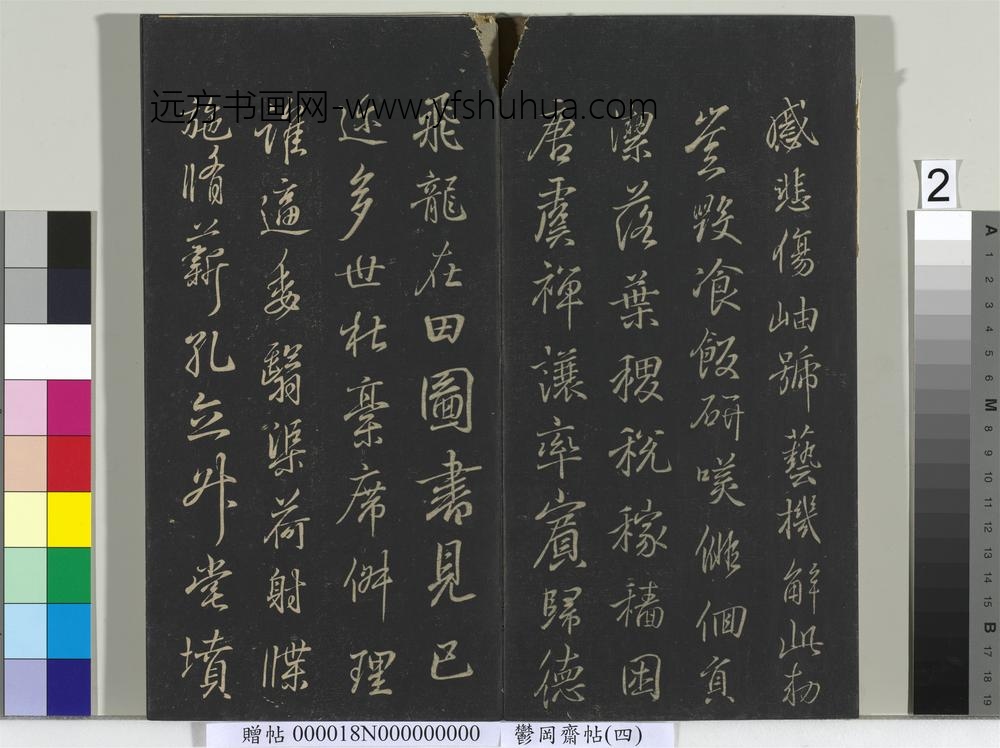 感悲傷岫號藝機解此勅
豈毀飡飯研唊個頁
潔落葉稷稅稼穡困
唐虞禪讓率賓歸德
飛龍在田圖書見已
近多世杜稾席併理
誰逼委翳渠荷射牒
施脩薪孔立升堂墳
远方书画网-www.yfshuhua.com
2
A 1 2 3 4 5 M 8 9 10 11 12 13 14 15 B 17 18 19
贈帖 000018N000000000 鬱岡齋帖(四)